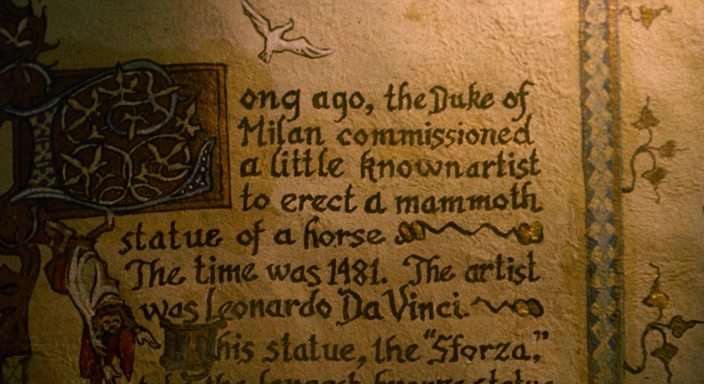 Long ago, the Duke of
Milan commissioned
a little known artist
to erect a mammoth
statue of a horse
The time was 1481. The artist
was Leonardo Da Vinci.
This statue, the "Sforza,"
the largest horse statue